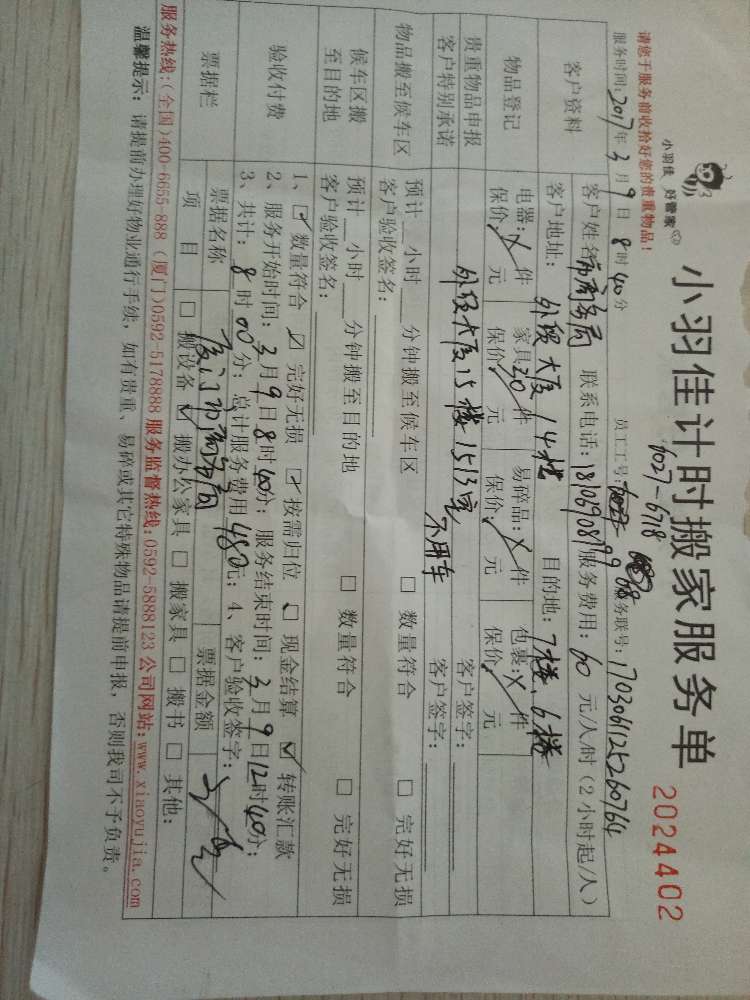 小羽佳 好管家
小羽佳计时搬家服务单
2024402
请您于服务前收拾好您的贵重物品!
员工工号: 6027-6718
服务时间: 2017年3月9日8时40分
服务联号: 1703061125260764
客户资料
客户姓名: 市商务局 联系电话: 服务费用: 60 元/人/时(2小时起/人)
客户地址: 外贸大厦14楼 目的地: 7楼、6楼
物品登记
电器: X 件 家具 20 件 易碎品: X 件 包裹: X 件
保价: 元 保价: 元 保价: 元 保价: 元
贵重物品申报
客户特别承诺
外贸大厦15楼1513室 不用车
客户签字:
客户签字:
物品搬至候车区
预计 小时 分钟搬至候车区 □ 数量符合 □ 完好无损
客户验收签名:
候车区搬
至目的地
预计 小时 分钟搬至目的地 □ 数量符合 □ 完好无损
客户验收签名:
验收付费
1、☑ 数量符合 ☑ 完好无损 ☑ 按需归位 □ 现金结算 ☑ 转账汇款
2、服务开始时间: 3月9日8时40分; 服务结束时间: 3月9日12时40分;
3、共计: 8时00分; 总计服务费用480元; 4、客户验收签字:
票据栏
票据名称 厦门市商务局 票据金额
项 目 □ 搬设备 ☑ 搬办公家具 □ 搬家具 □ 搬书 □ 其他:
服务热线:(全国)400-6655-888 (厦门)0592-5178888 服务监督热线:0592-5888123 公司网站:www.xiaoyujia.com
温馨提示: 请提前办理好物业通行手续, 如有贵重、易碎或其它特殊物品请提前申报, 否则我司不予负责。